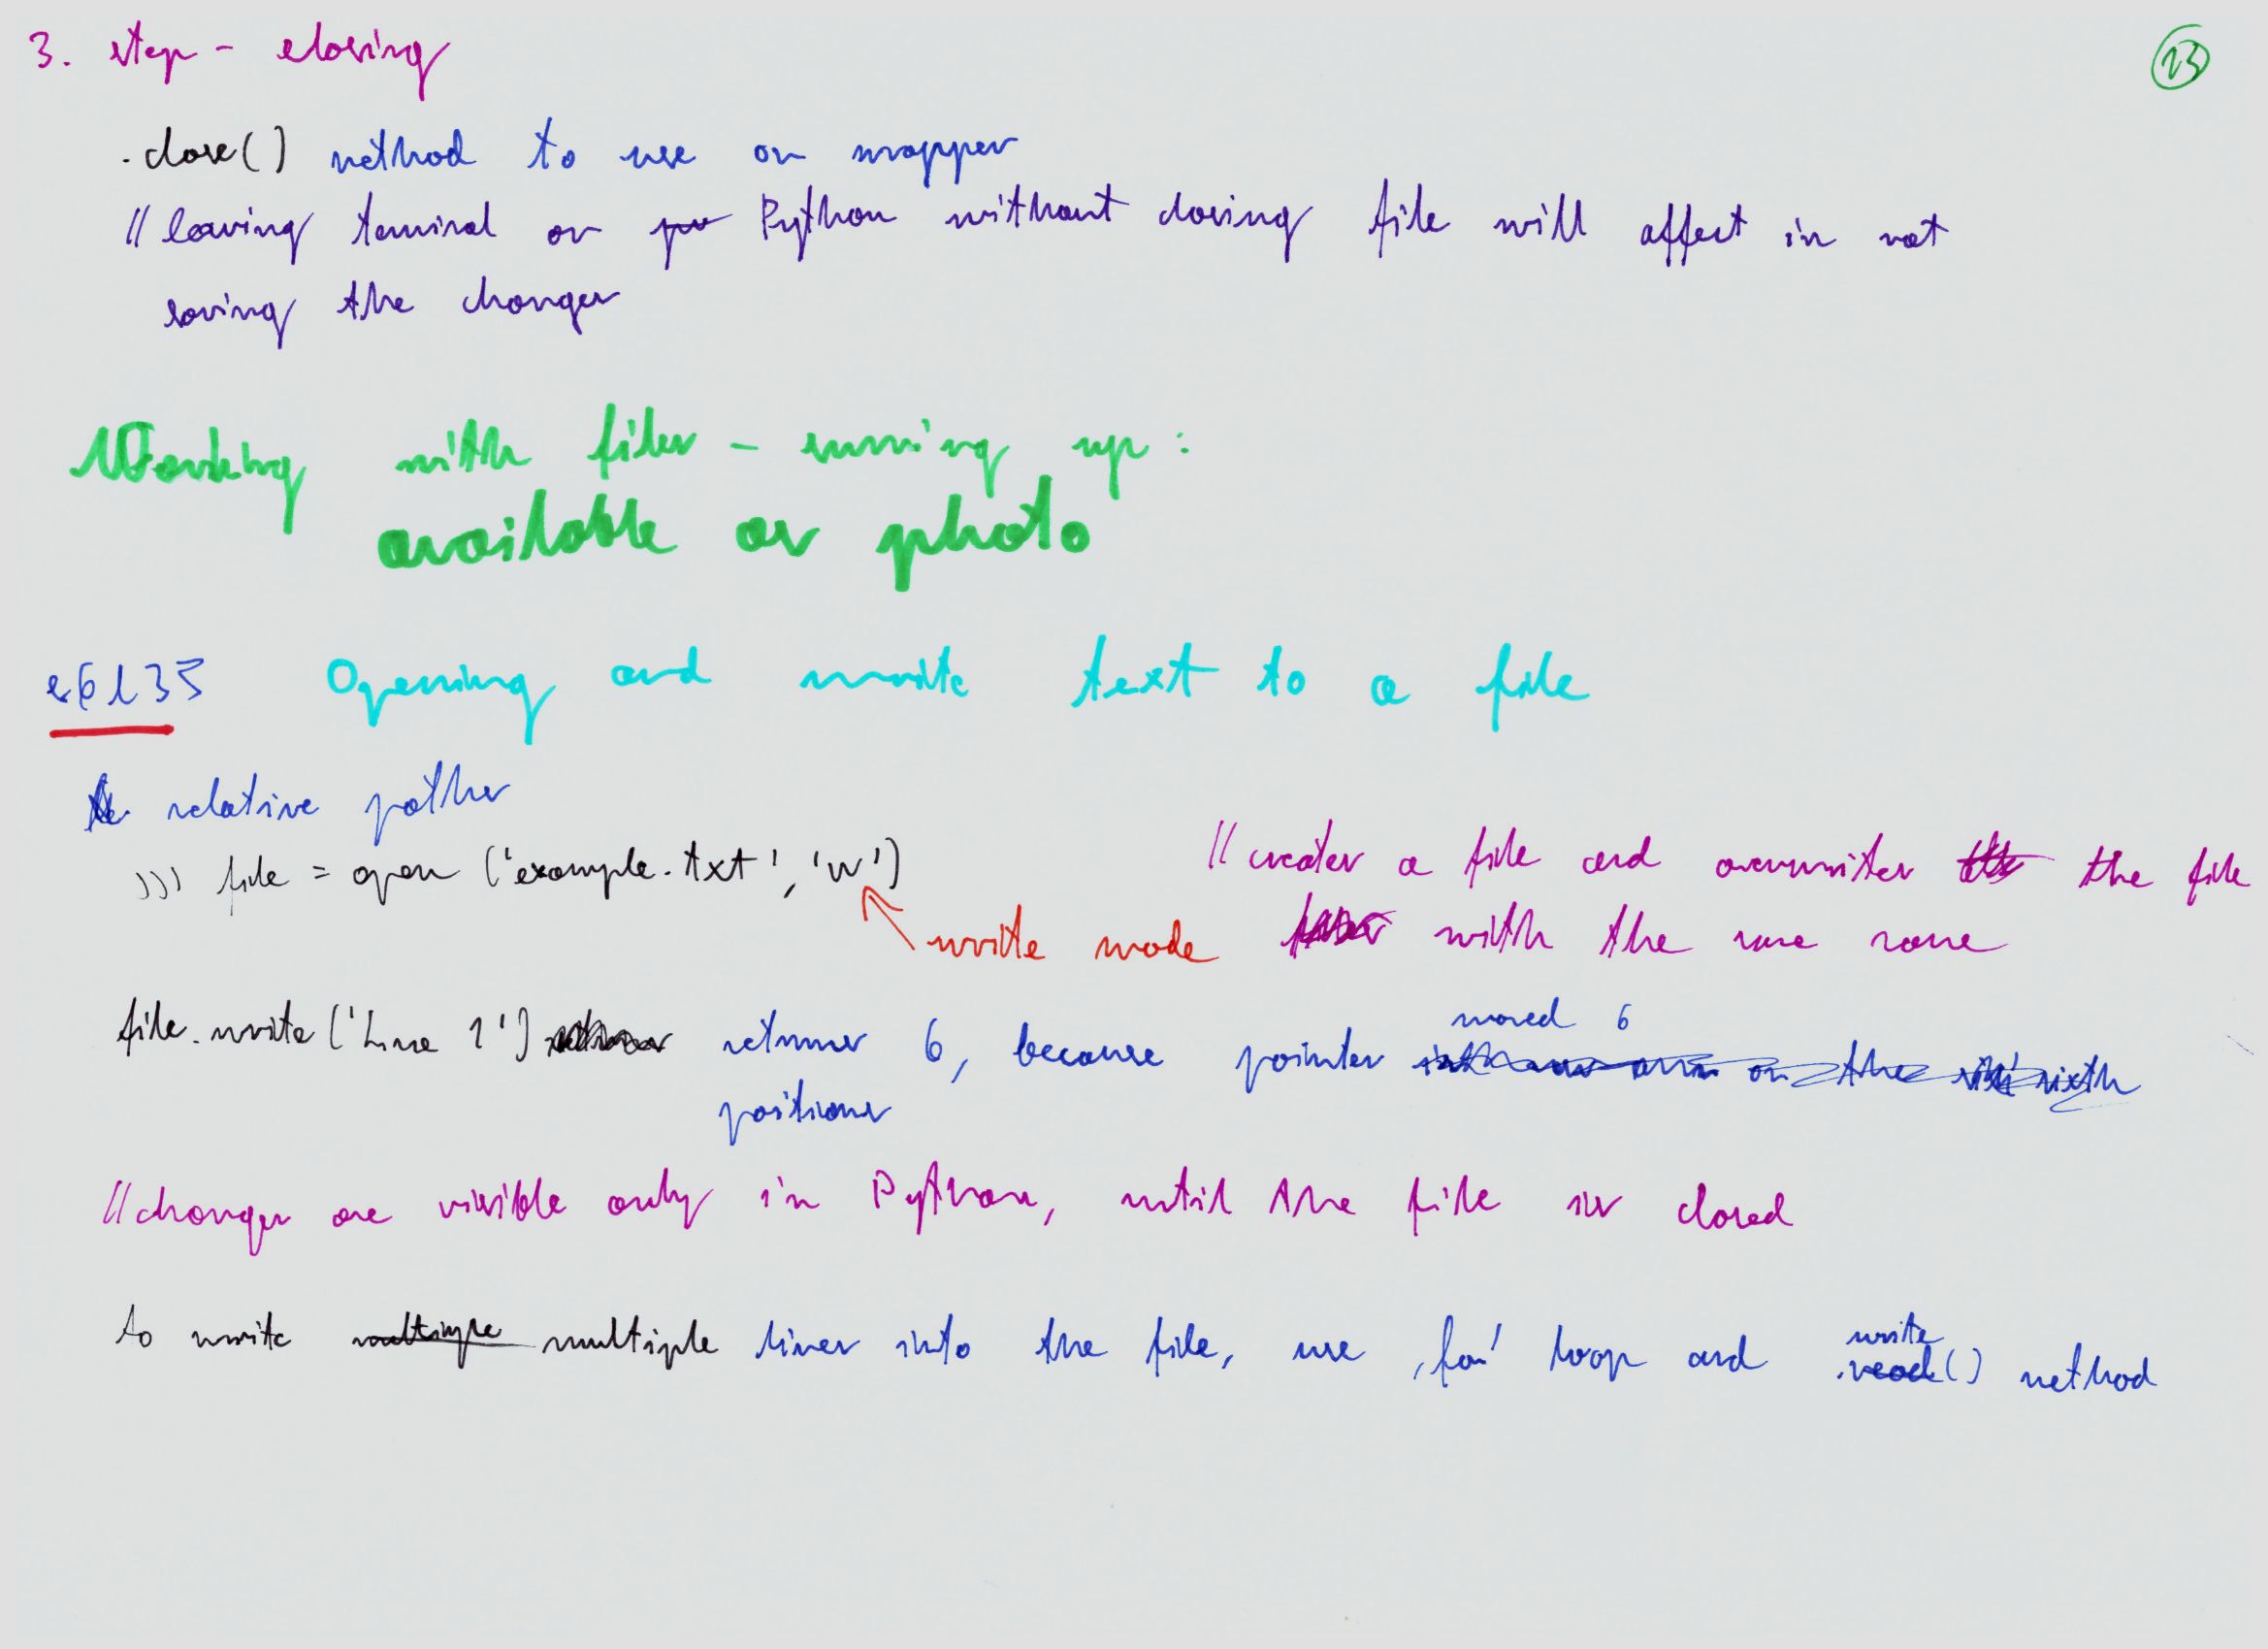 3. step - closing
23
.close() method to use on wrapper
// leaving terminal or Python without closing file will affect in not
saving the changes
Working with files - suming up:
available as photo
s6l35 Opening and write text to a file
relative pathes
>>> file = open ('example.txt', 'w')
// creates a file and overwrites the file
write mode with the same name
moved 6
file.write('Line 1') returns 6, because pointer
positions
// changes are visible only in Python, until the file is closed
write
to write multiple lines into the file, use 'for' loop and .read() method